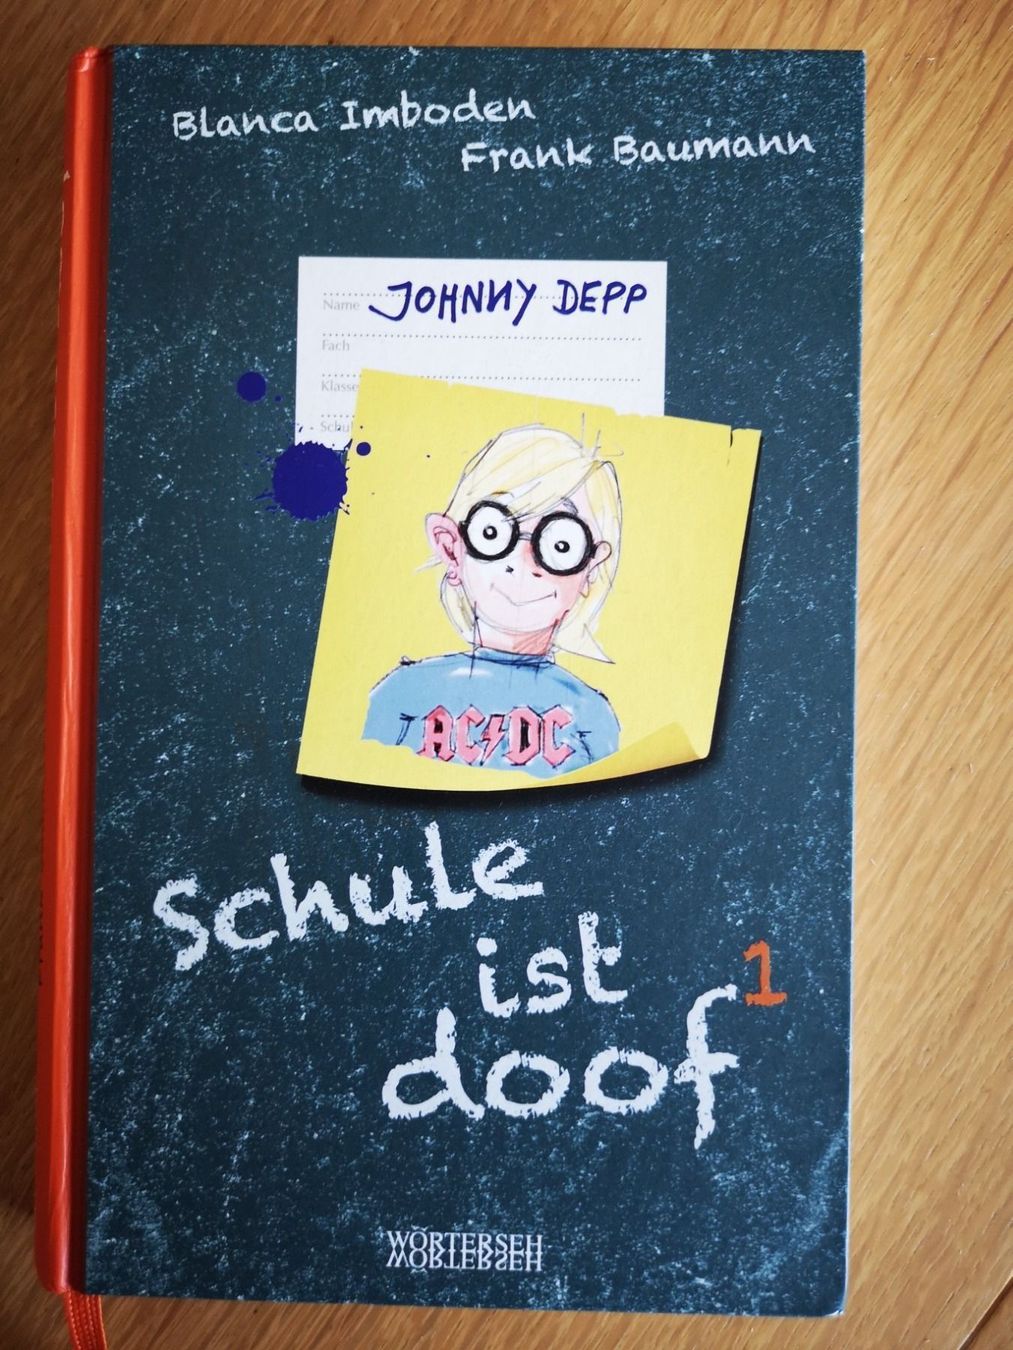 Blanca Imboden
Frank Baumann
Name JOHNNY DEPP
Fach
Klasse
Schul
AC/DC
Schule
ist
doof 1
WÖRTERSEH